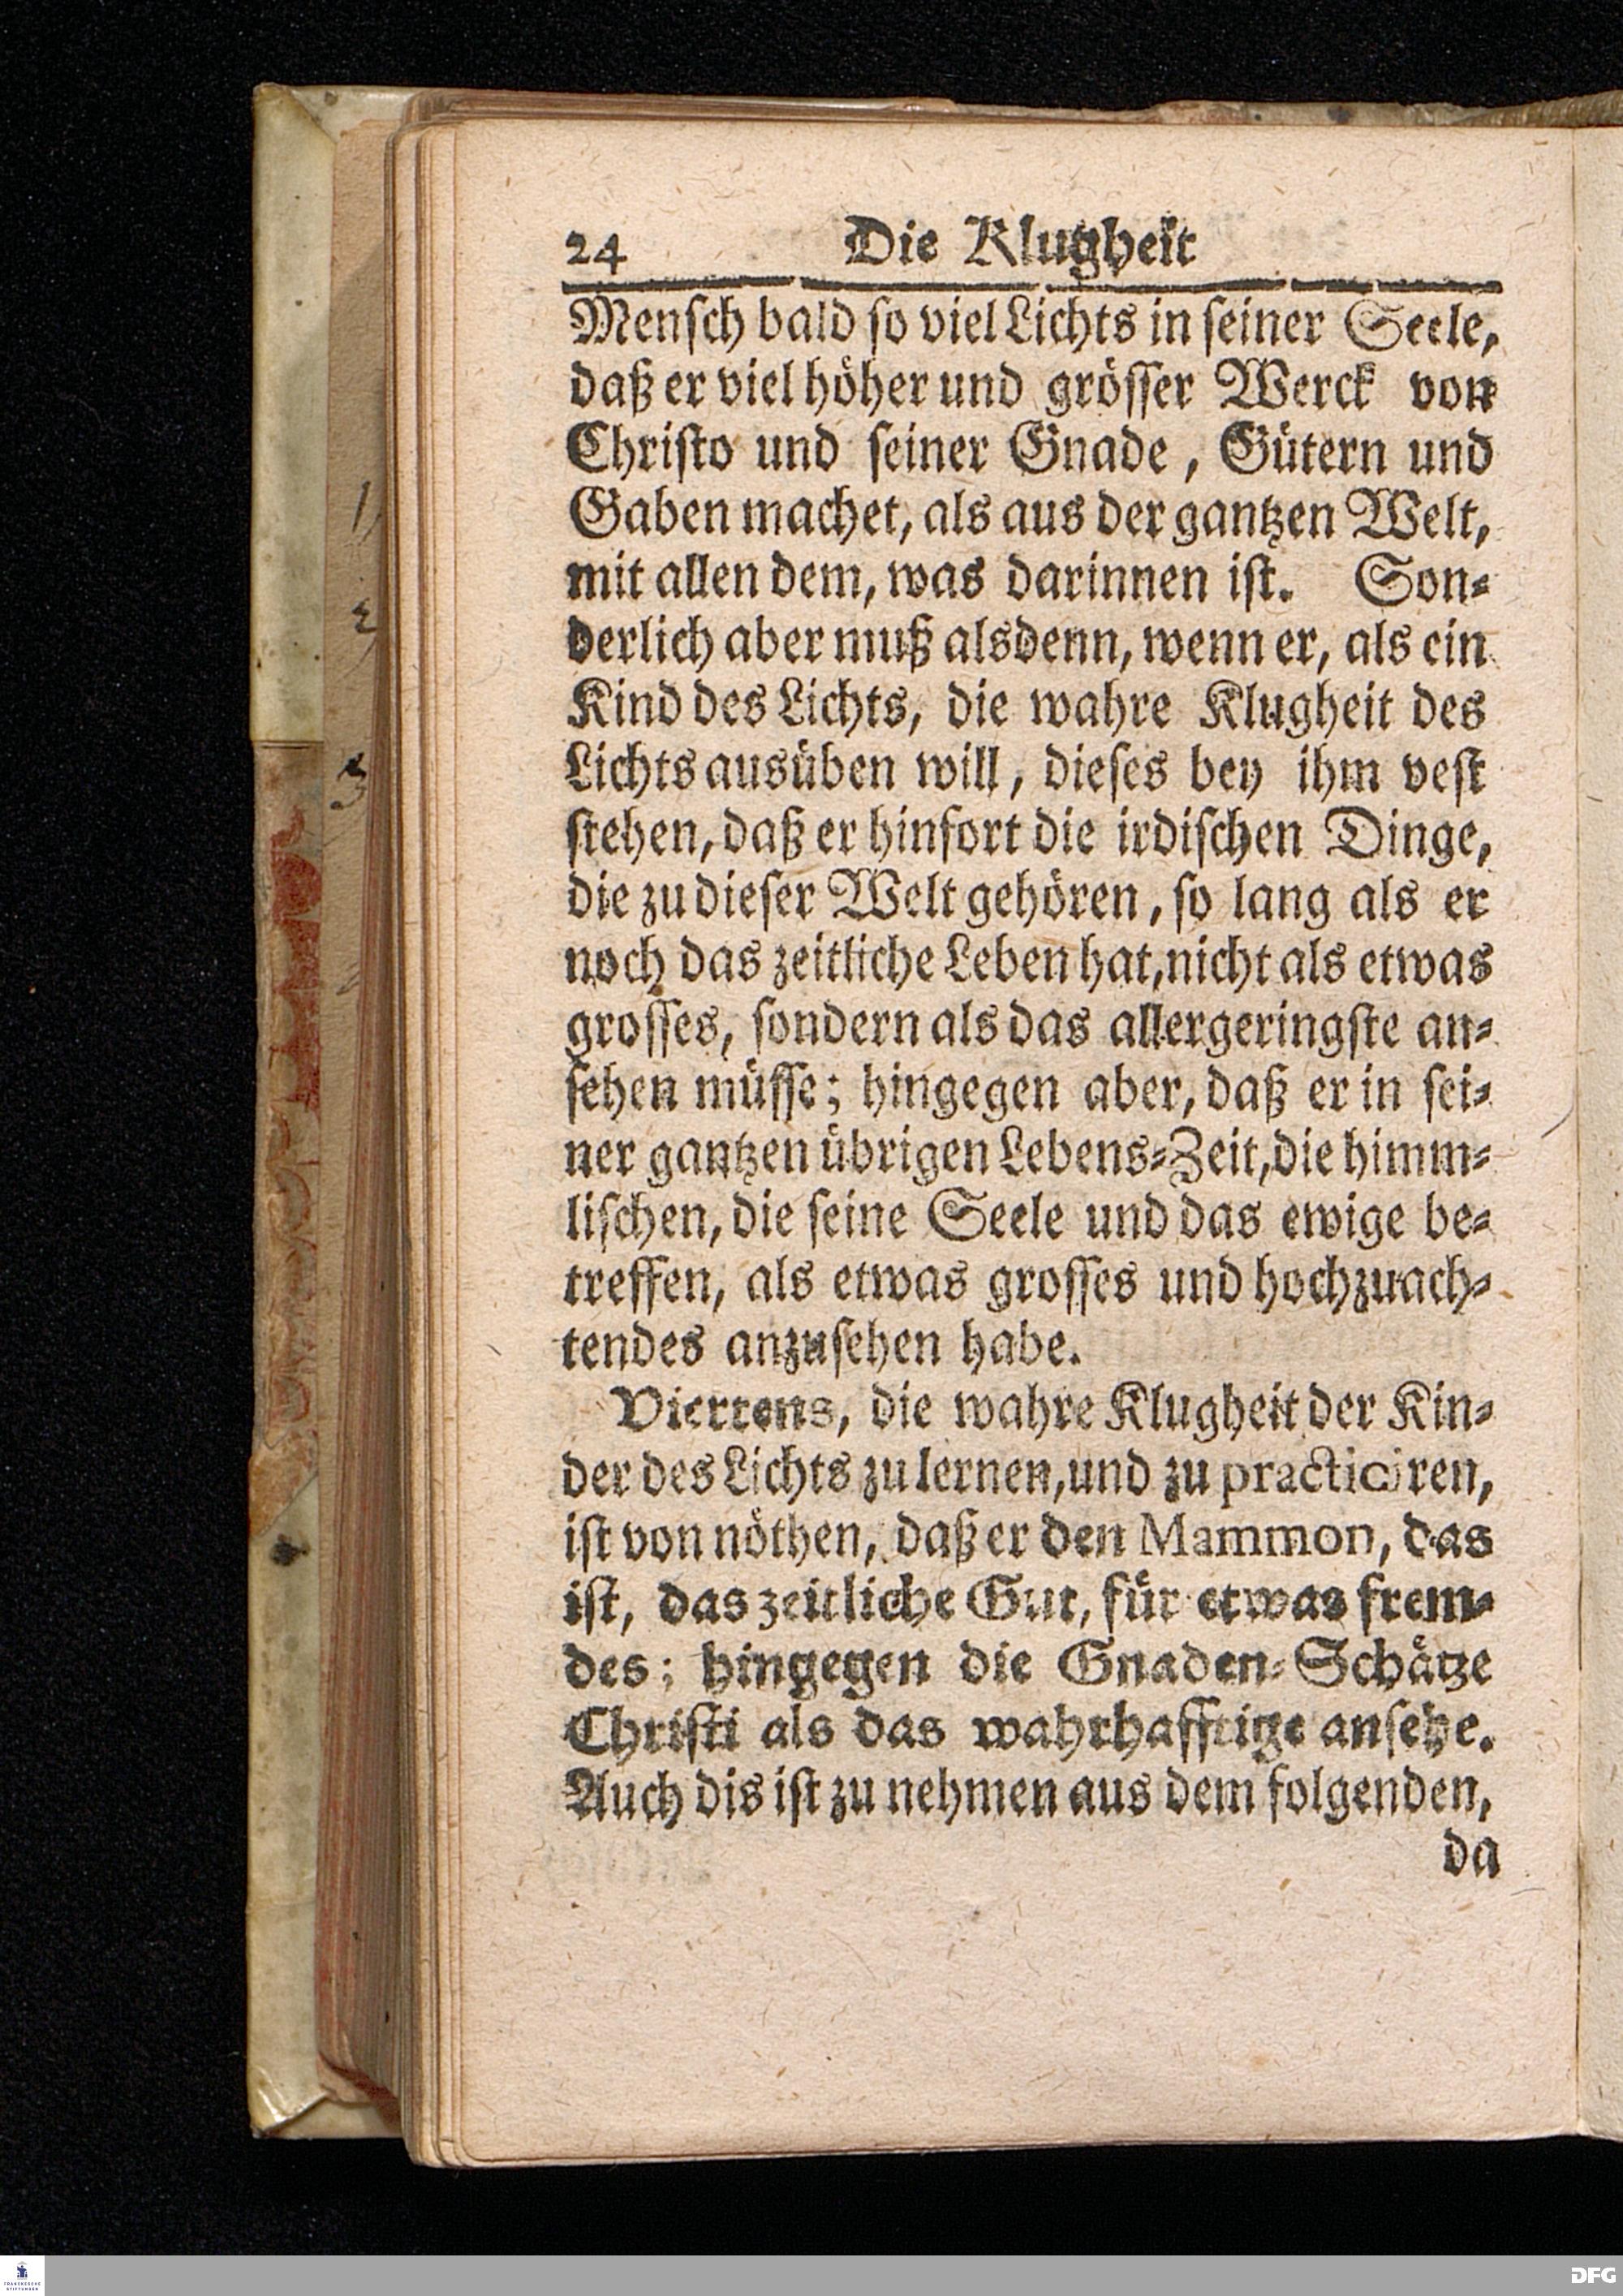 24 Die Klugheit
Menſch bald ſo viel Lichts in ſeiner Seele,
daß er viel höher und gröſſer Werck von
Chriſto und ſeiner Gnade, Gütern und
Gaben machet, als aus der gantzen Welt,
mit allen dem, was darinnen iſt. Son⸗
derlich aber muß alsdenn, wenn er, als ein
Kind des Lichts, die wahre Klugheit des
Lichts ausüben will, dieſes bey ihm veſt
ſtehen, daß er hinfort die irdiſchen Dinge,
die zu dieſer Welt gehören, ſo lang als er
noch das zeitliche Leben hat, nicht als etwas
groſſes, ſondern als das allergeringſte an⸗
ſehen müſſe; hingegen aber, daß er in ſei⸗
ner gantzen übrigen Lebens⸗Zeit, die himm⸗
liſchen, die ſeine Seele und das ewige be⸗
treffen, als etwas groſſes und hochzuach⸗
tendes anzuſehen habe.
Viertens, die wahre Klugheit der Kin⸗
der des Lichts zu lernen, und zu practiciren,
iſt von nöthen, daß er den Mammon, das
iſt, das zeitliche Gut, für etwas frem⸗
des; hingegen die Gnaden⸗Schätze
Chriſti als das wahrhafftige anſehe.
Auch dis iſt zu nehmen aus dem folgenden,
da
1,
2
3
FRANCKESCHE
STIFTUNGEN
DFG